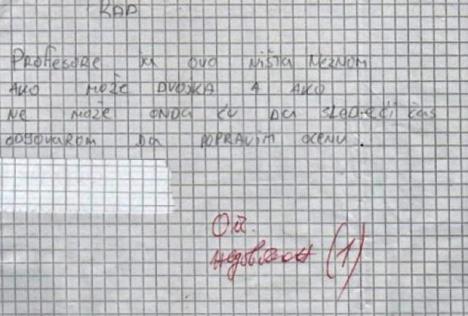 KAP
PROFESORE JA OVO NIŠTA NEZNAM
AKO MOŽE DVOJKA A AKO
NE MOŽE ONDA ĆU DA SLEDEĆI ČAS
ODGOVARAM DA POPRAVIM OCENU.
Оц.
недовољан (1)